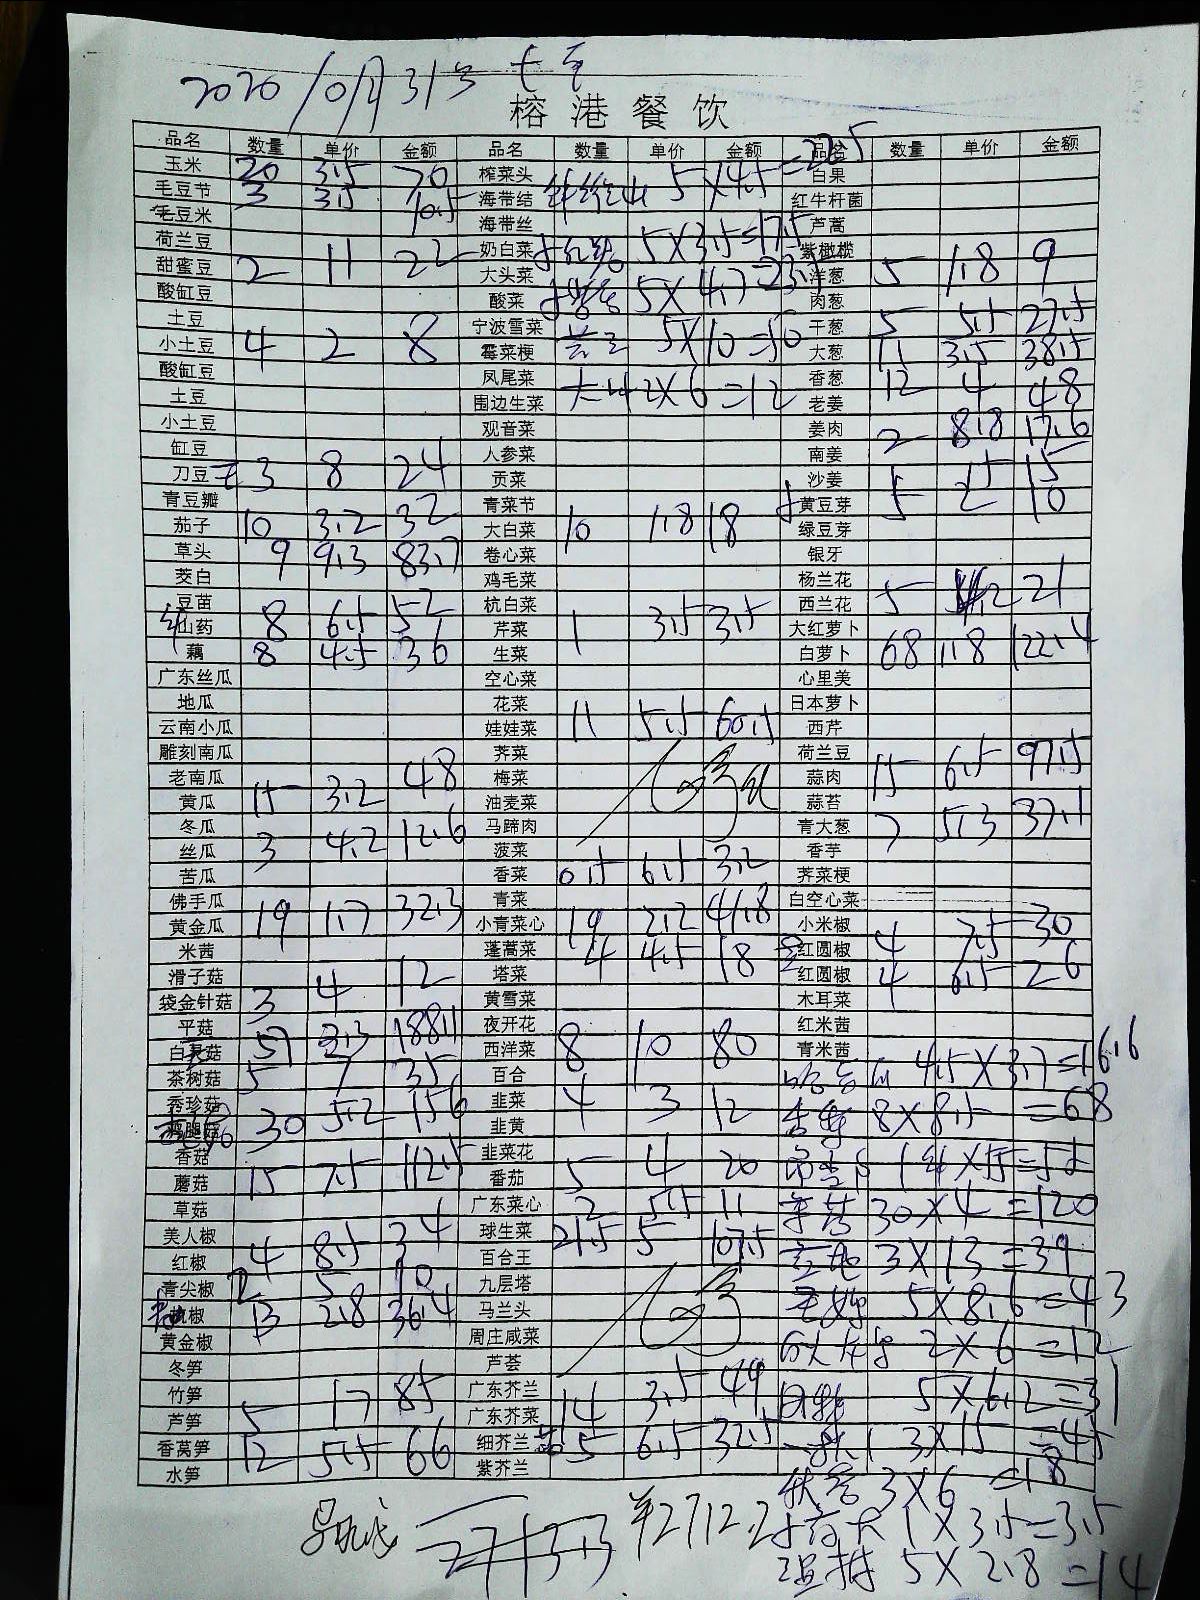 2020/10月31号
榕港餐饮
品名 数量 单价 金额 品名 数量 单价 金额 品名 数量 单价 金额
玉米 20 3.5 70 榨菜头 5×4.5=22.5 白果
毛豆节 3 3.5 10.5 海带结 红牛杆菌
毛豆米 海带丝 5×3.5=17.5 芦蒿
荷兰豆 奶白菜 紫橄榄
甜蜜豆 2 11 22 大头菜 5×4.7=23.5 洋葱 5 1.8 9
酸缸豆 酸菜 肉葱
土豆 宁波雪菜 5×10=50 干葱 5 5.5 27.5
小土豆 4 2 8 霉菜梗 大葱 11 3.5 38.5
酸缸豆 凤尾菜 2×6=12 香葱 12 4 48
土豆 围边生菜 老姜
小土豆 观音菜 姜肉 2 8.8 17.6
缸豆 人参菜 南姜
刀豆 3 8 24 贡菜 沙姜 15
青豆瓣 青菜节 黄豆芽 5 2 10
茄子 10 3.2 32 大白菜 10 1.8 18 绿豆芽
草头 9 9.3 83.7 卷心菜 银牙
茭白 鸡毛菜 杨兰花
豆苗 杭白菜 西兰花 5 4.2 21
山药 8 6.5 52 芹菜 1 3.5 3.5 大红萝卜
藕 8 4.5 36 生菜 白萝卜 68 1.8 122.4
广东丝瓜 空心菜 心里美
地瓜 花菜 日本萝卜
云南小瓜 娃娃菜 11 5.5 60.5 西芹
雕刻南瓜 荠菜 荷兰豆
老南瓜 梅菜 蒜肉 15 6.5 97.5
黄瓜 15 3.2 48 油麦菜 蒜苔
冬瓜 马蹄肉 青大葱 7 5.3 37.1
丝瓜 3 4.2 12.6 菠菜 香芋
苦瓜 香菜 0.5 6.5 3.2 荠菜梗
佛手瓜 青菜 白空心菜
黄金瓜 19 1.7 32.3 小青菜心 19 2.2 41.8 小米椒
米茜 蓬蒿菜 4 4.5 18 红圆椒 4 7.5 30
滑子菇 塔菜 红圆椒 4 6.5 26
袋金针菇 3 4 12 黄雪菜 木耳菜
平菇 夜开花 红米茜
白灵菇 57 3.3 188.1 西洋菜 8 10 80 青米茜
茶树菇 5 7 35 百合 4.5×3.7=16.6
秀珍菇 韭菜 4 3 12 8×8.5=68
鸡腿菇 30 5.2 156 韭黄
香菇 韭菜花
蘑菇 15 7.5 112.5 番茄 5 4 20
草菇 广东菜心 2 5.5 11 30×4=120
美人椒 球生菜 21.5 5 107.5
红椒 4 8.5 34 百合王 3×13=39
青尖椒 2 5 10 九层塔
杭椒 13 2.8 36.4 马兰头 5×8.6=43
黄金椒 周庄咸菜 2×6=12
冬笋 芦荟
竹笋 广东芥兰 5×6.2=31
芦笋 5 17 85 广东芥菜 14 3.5 49
香莴笋 12 5.5 66 细芥兰 5 6.5 32.5 3×15=45
水笋 紫芥兰 3×6=18
¥2712.2 1×3.5=3.5
5×2.8=14